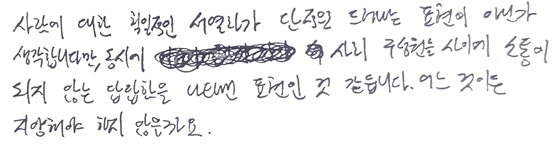 사람에 대한 획일적인 서열화가 단적으로 드러나는 표현이 아닌가
생각합니다만, 동시에 사회 구성원들 사이에 소통이
되지 않는 답답함을 나타낸 표현인 것 같습니다. 어느 것이든
지양해야 하지 않을까요.